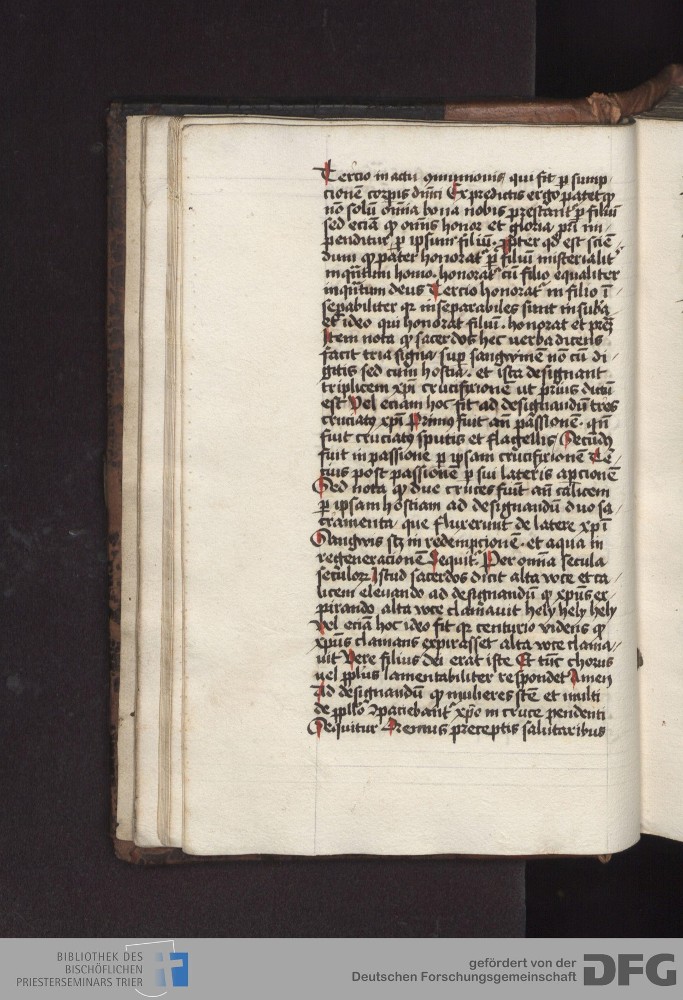 Tercio in actu ɔmunionis qui fit ꝑ sump
cionē corpis dnīci Ex predictis ergo patet ꝙ
nō solū omīa bona nobis prestant᷑ ꝑ filiū
sed eciā ꝙ omīs honor et gloria pri im
penditur ꝑ ipsum filiū. qd est sciē
dum ꝙ pater honorat᷑ ꝑ filiū misterialit᷑
inqūtum homo. honorat᷑ cū filio equaliter
inqūtum deus Tercio honorat᷑ in filio ī
sepabiliter qꝛ inseparabiles sunt in suba
et ideo qui honorat filiū. honorat et prēȝ
Item nota ꝙ sacerdos hec verba dicens
facit tria signa sup sangwinē nō cū di
gitis sed cum hostia. et ista designant
triplicem xpī crucifixionē ut prius dictū
est Vel eciam hoc fit ad designandū tres
cruciatꝰ xpī Primꝰ fuit añ passionē. qñ
fuit cruciatꝰ sputis et flagellis Secūdꝰ
fuit in passione ꝑ ipsam crucifixionē Ter
cius post passionē ꝑ sui lateris apcionē
Sed nota ꝙ due cruces fiūt añ calicem
ꝑ ipsam hostiam ad designandū duo sa
cramenta. que fluxerunt de latere xpī
Sangwis scȝ in redempcionē. et aqua in
regeneracionē Sequit᷑. Per omīa secula
seculoꝝ Istud sacerdos dicit alta voce et ca
licem eleuando ad designandū ꝙ xpūs ex
pirando alta voce clamauit hely hely hely
Vel eciā hoc ideo fit qꝛ centurio videns ꝙ
xpūs clamans expirasset alta voce clama
uit Vere filius dei erat iste Et tūc chorus
uel pplus lamentabiliter respondet Amen
Ad designandū ꝙ mulieres scē et multi
de pplo ɔpaciebant᷑ xpo in cruce pendenti
Sequitur Oremus preceptis salutaribus
BIBLIOTHEK DES
BISCHÖFLICHEN
PRIESTERSEMINARS TRIER
gefördert von der
Deutschen Forschungsgemeinschaft
DFG